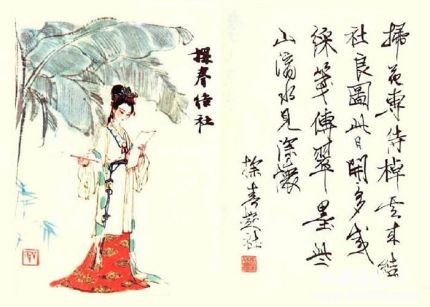 探春结社
掃花專待棹雪來結
社良圖此日開多感
綵箋傳翠墨些
山蕩水見深
探春